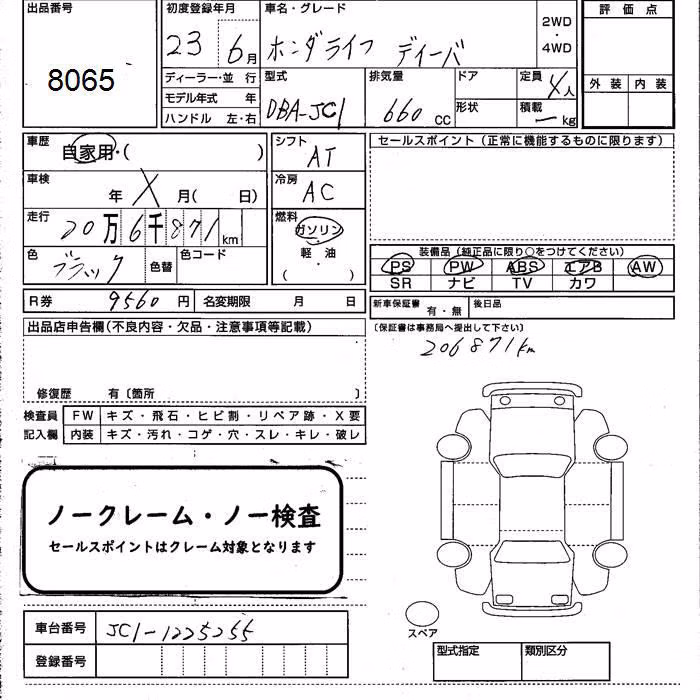 出品番号
8065
初度登録年月
23 6月
車名・グレード
ホンダライフ ディーバ
2WD
・
4WD
評価点
外装 内装
ディーラー・並行
モデル年式 年
ハンドル 左・右
型式
DBA-JC1
排気量
660 CC
ドア
形状
定員
4人
積載
ー kg
車歴
自家用・( )
車検
年 X 月( 日)
走行
20万6千871 km
色
ブラック
色替
色コード
シフト
AT
冷房
AC
燃料
ガソリン
・
軽・油
( )
セールスポイント(正常に機能するものに限ります)
装備品(純正品に限り○をつけてください)
PS PW ABS エアB AW
SR ナビ TV カワ
R券 9560 円 名変期限 月 日
新車保証書 有・無 後日品
(保証書は事務局へ提出して下さい)
206871km
出品店申告欄(不良内容・欠品・注意事項等記載)
修復歴 有〔箇所 〕
検査員 FW キズ・飛石・ヒビ割・リペア跡・X要
記入欄 内装 キズ・汚れ・コゲ・穴・スレ・キレ・破レ
ノークレーム・ノー検査
セールスポイントはクレーム対象となります
車台番号 JC1-1225255
登録番号
スペア
型式指定 類別区分